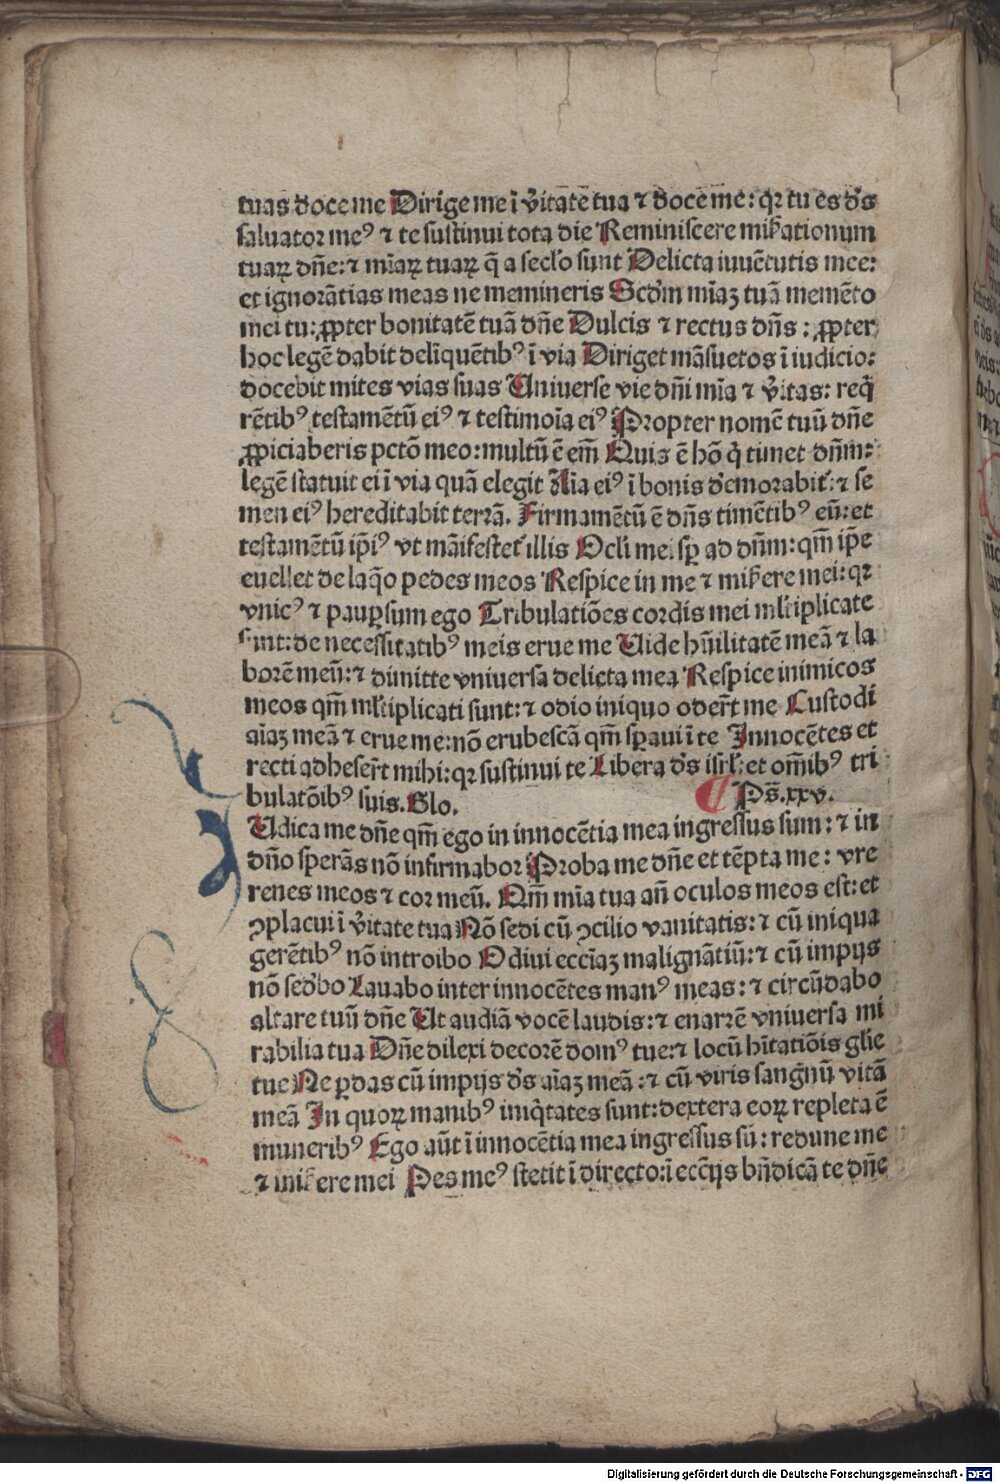 tuas doce me Dirige me ĩ v̾itatẽ tua ⁊ doce me: qꝛ tu es dꝰs
saluatoꝛ meꝰ ⁊ te sustinui tota die Reminiscere mis̾ationum
tuaꝝ dñe: ⁊ mĩaꝝ tuaꝝ q̃ a secl̾o sunt Delicta iuuẽtutis mee:
et ignoꝛãtias meas ne memineris Scd̾m mĩaꝫ tuã memẽto
mei tu: ꝓpter bonitatẽ tuã dñe Dulcis ⁊ rectus dñs : ꝓpter
hoc legẽ dabit delĩquẽtibꝰ ĩ via Diriget mãsuetos ĩ iudicio:
docebit mites vias suas Uniuerse vie dñi mĩa ⁊ v̾itas: req̃
rẽtibꝰ testamẽtũ eiꝰ ⁊ testimoĩa eiꝰ Propter nomẽ tuũ dñe
ꝓpiciaberis pctõ meo: multũ ẽ em̃ Quis ẽ hõ q̃ timet dñm:
legẽ statuit ei ĩ via quã elegit Aĩa eiꝰ ĩ bonis d̾emoꝛabit̾: ⁊ se
men eiꝰ hereditabit terrã. Firmamẽtũ ẽ dñs timẽtibꝰ eũ: et
testamẽtũ ip̃iꝰ vt mãifestet̾ illis Ocli mei sp̃ ad dñm: qm̃ ip̃e
euellet de laq̃o pedes meos Respice in me ⁊ mis̾ere mei: qꝛ
vnicꝰ ⁊ paup̱ sum ego Tribulatiões coꝛdis mei ml̾tiplicate
sunt: de necessitatibꝰ meis erue me Uide hũilitatẽ meã ⁊ la
boꝛẽ meũ: ⁊ dimitte vniuersa delicta mea Respice inimicos
meos qm̃ ml̾tiplicati sunt: ⁊ odio iniquo oder̃t me Custodi
aĩaꝫ meã ⁊ erue me: nõ erubescã qm̃ sp̱aui ĩ te Innocẽtes et
recti adheser̃t mihi: qꝛ sustinui te Libera d̾s isr̃l: et om̃ibꝰ tri
bulatõibꝰ suis. Glo. ¶ Ps̃. xxv.
Udica me dñe qm̃ ego in innocẽtia mea ingressus sum: ⁊ in
dño sperãs nõ infirmaboꝛ Proba me dñe et tẽpta me: vre
renes meos ⁊ coꝛ meũ. Qm̃ mĩa tua añ oculos meos est: et
ꝯplacui ĩ v̾itate tua Nõ sedi cũ ꝯcilio vanitatis: ⁊ cũ iniqua
gerẽtibꝰ nõ introibo Odiui eccĩaꝫ malignãtiũ: ⁊ cũ impijs
nõ sed̾bo Lauabo inter innocẽtes manꝰ meas: ⁊ circũdabo
altare tuũ dñe Ut audiã vocẽ laudis: ⁊ enarrẽ vniuersa mi
rabilia tua Dñe dilexi decoꝛẽ domꝰ tue: ⁊ locũ hĩtatiõis glie
tue Ne p̱das cũ impijs d̾s aĩaꝫ meã : ⁊ cũ viris sang̃nũ vitã
meã In quoꝝ manibꝰ iniq̃tates sunt: dextera eoꝝ repleta ẽ
muneribꝰ Ego aũt ĩ innocẽtia mea ingressus sũ: redime me
⁊ mis̾ere mei Pes meꝰ stetit ĩ directo: ĩ eccĩjs bñdicã te dñe
Digitalisierung gefördert durch die Deutsche Forschungsgemeinschaft - DFG